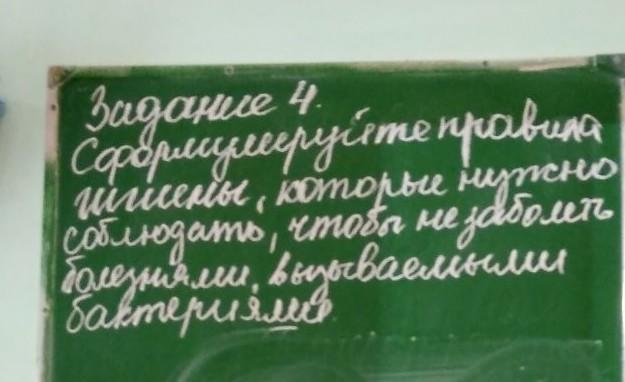 Задание 4.
Сформулируйте правила
гигиены, которые нужно
соблюдать, чтобы не заболеть
болезнями, вызываемыми
бактериями.